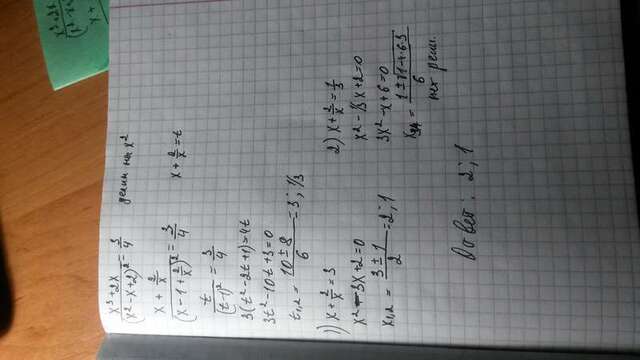 x³+2x / (x²-x+2)² = 3/4 делим на x²
x + 2/x / (x-1+2/x)² = 3/4 x + 2/x = t
t / (t-1)² = 3/4
3(t²-2t+1)=4t
3t²-10t+3=0
t₁,₂ = 10±8 / 6 = 3; 1/3
1) x + 2/x = 3
x² - 3x+2=0
x₁,₂ = 3±1 / 2 = 2; 1
2) x + 2/x = 1/3
x² - 1/3 x + 2=0
3x² - x + 6 = 0
= 1±√1-4·6·3 / 6
нет реш.
Ответ: 2; 1